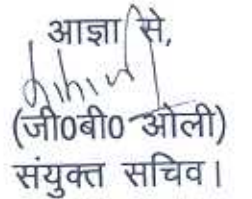 आज्ञा से,
(जी0बी0 ओली)
संयुक्त सचिव।